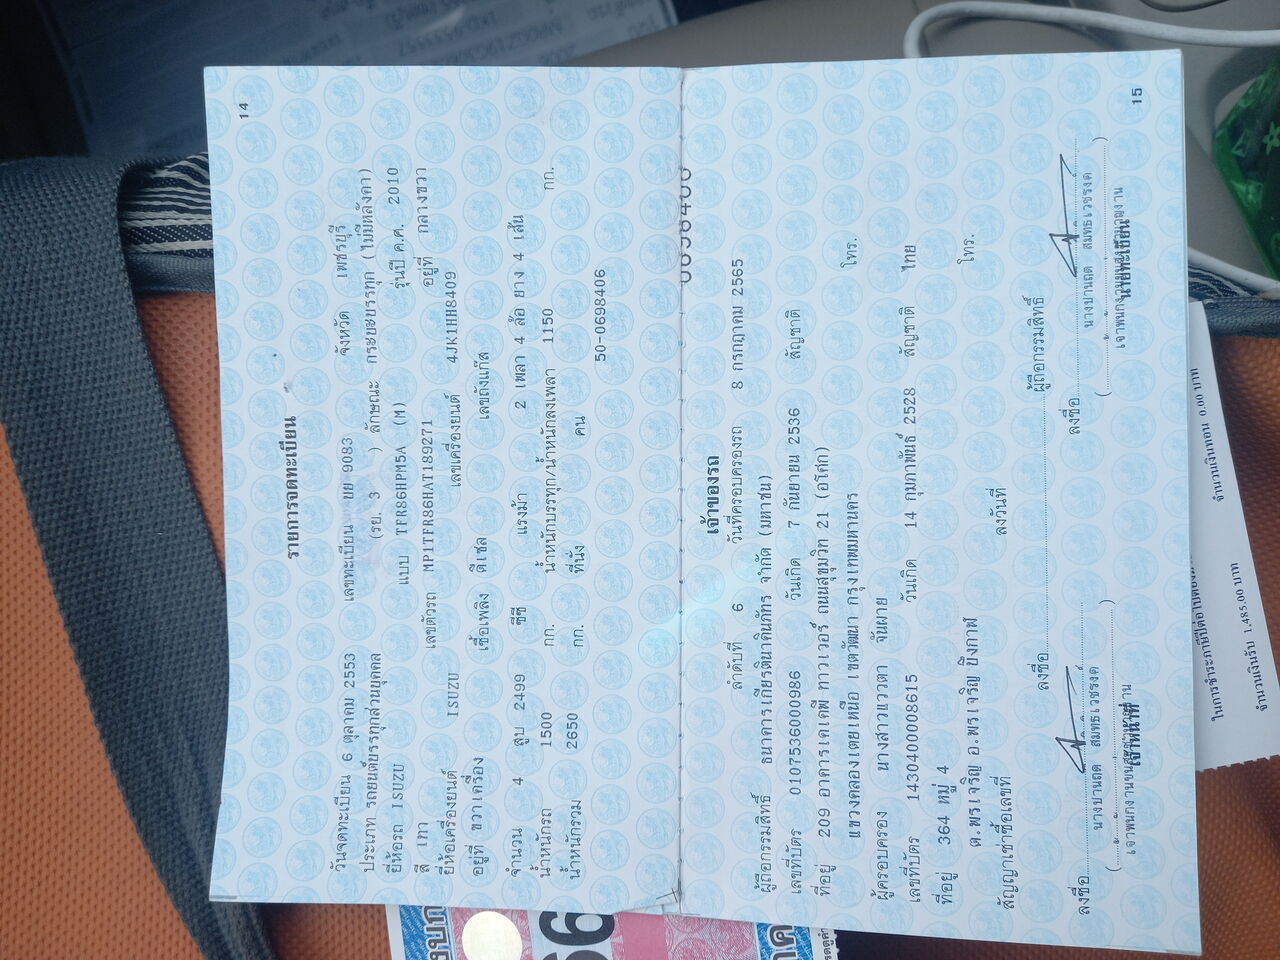 14
รายการจดทะเบียน
วันจดทะเบียน 6 ตุลาคม 2553 เลขทะเบียน ขย 9083 จังหวัด เพชรบุรี
ประเภท รถยนต์บรรทุกส่วนบุคคล (รย. 3 ) ลักษณะ กระบะบรรทุก (ไม่มีหลังคา)
ยี่ห้อรถ ISUZU แบบ TFR86HPM5A (M) รุ่นปี ค.ศ. 2010
สี เทา เลขตัวรถ MP1TFR86HAT189271 อยู่ที่ กลางขวา
ยี่ห้อเครื่องยนต์ ISUZU เลขเครื่องยนต์ 4JK1HH8409
อยู่ที่ ขวาเครื่อง เชื้อเพลิง ดีเซล เลขถังแก๊ส
จำนวน 4 สูบ 2499 ซีซี แรงม้า 2 เพลา 4 ล้อ ยาง 4 เส้น
น้ำหนักรถ 1500 กก. น้ำหนักบรรทุก/น้ำหนักลงเพลา 1150 กก.
น้ำหนักรวม 2650 กก. ที่นั่ง คน
50-0698406
15
เจ้าของรถ
ลำดับที่ 6 วันที่ครอบครองรถ 8 กรกฎาคม 2565
ผู้ถือกรรมสิทธิ์ ธนาคารเกียรตินาคินภัทร จำกัด (มหาชน)
เลขที่บัตร 0107536000986 วันเกิด 7 กันยายน 2536 สัญชาติ
ที่อยู่ 209 อาคารเคเคพี ทาวเวอร์ ถนนสุขุมวิท 21 (อโศก)
แขวงคลองเตยเหนือ เขตวัฒนา กรุงเทพมหานคร โทร.
ผู้ครอบครอง นางสาวแววตา จันผาย
เลขที่บัตร 1430400008615 วันเกิด 14 กุมภาพันธ์ 2528 สัญชาติ ไทย
ที่อยู่ 364 หมู่ 4
ต.พรเจริญ อ.พรเจริญ บึงกาฬ โทร.
สัญญาเช่าซื้อเลขที่ ลงวันที่
ลงชื่อ ผู้ถือกรรมสิทธิ์
ลงชื่อ ลงชื่อ
เจ้าหน้าที่ นายทะเบียน
ในการชำระภาษีปีต่อไป
จำนวนเงินรับ 1,485.00 บาท จำนวนเงินทอน 0.00 บาท